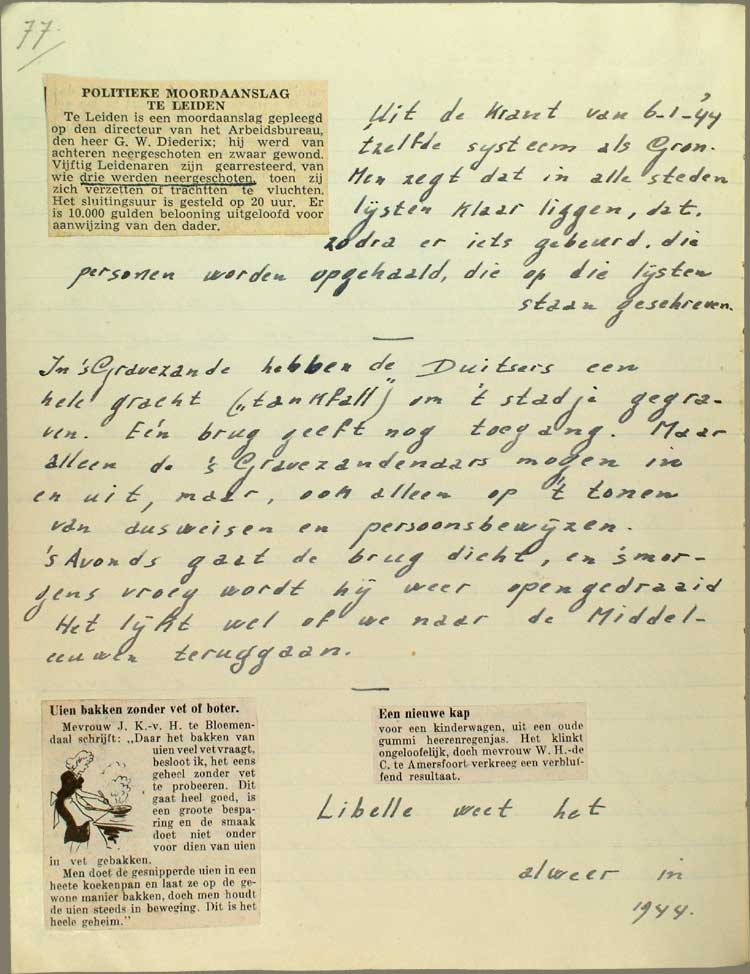 77.
POLITIEKE MOORDAANSLAG
TE LEIDEN
Te Leiden is een moordaanslag gepleegd
op den directeur van het Arbeidsbureau,
den heer G. W. Diederix; hij werd van
achteren neergeschoten en zwaar gewond.
Vijftig Leidenaren zijn gearresteerd, van
wie drie werden neergeschoten, toen zij
zich verzetten of trachtten te vluchten.
Het sluitingsuur is gesteld op 20 uur. Er
is 10.000 gulden belooning uitgeloofd voor
aanwijzing van den dader.
Uit de Krant van 6-1-'44
'tzelfde systeem als Gron.
Men zegt dat in alle steden
lijsten klaar liggen, dat.
zodra er iets gebeurd. die
personen worden opgehaald, die op die lijsten
staan geschreven.
In 's Gravezande hebben de Duitsers een
hele gracht („tankfall") om 't stadje gegra-
ven. Eén brug geeft nog toegang. Maar
alleen de 's Gravezandenaars mogen in
en uit, maar, ook alleen op 't tonen
van ausweisen en persoonsbewijzen.
's Avonds gaat de brug dicht, en 's mor-
gens vroeg wordt hij weer opengedraaid
Het lijkt wel of we naar de Middel-
eeuwen teruggaan.
Uien bakken zonder vet of boter.
Mevrouw J. K.-v. H. te Bloemen-
daal schrijft: „Daar het bakken van
uien veel vet vraagt,
besloot ik, het eens
geheel zonder vet
te probeeren. Dit
gaat heel goed, is
een groote bespa-
ring en de smaak
doet niet onder
voor dien van uien
in vet gebakken.
Men doet de gesnipperde uien in een
heete koekenpan en laat ze op de ge-
wone manier bakken, doch men houdt
de uien steeds in beweging. Dit is het
heele geheim."
Een nieuwe kap
voor een kinderwagen, uit een oude
gummi heerenregenjas. Het klinkt
ongeloofelijk, doch mevrouw W. H.-de
C. te Amersfoort verkreeg een verbluf-
fend resultaat.
Libelle weet het
alweer in
1944.